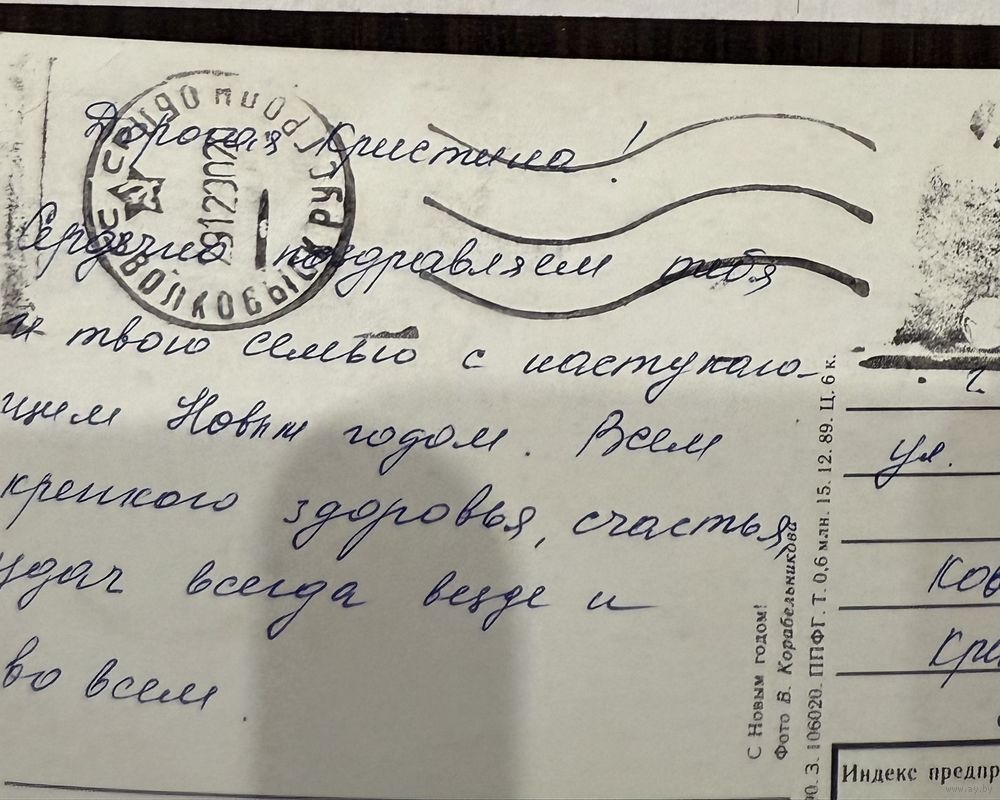 Дорогая Кристина!
Сердечно поздравляем тебя
и твою семью с наступаю-
щим Новым годом. Всем
крепкого здоровья, счастья,
удач всегда везде и
во всем.
СССР ВОЛКОВЫСК ГРОДН ОБЛ
ул.
Ков
Кри
С Новым годом!
Фото В. Корабельникова
З. 106020. ППФГ. Т. 0,6 млн. 15. 12. 89. Ц. 6 к.
Индекс предпр
www.ay.by